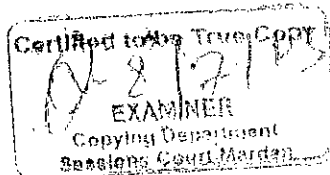 Certified to be True Copy
EXAMINER
Copying Department
Sessions Court Mardan